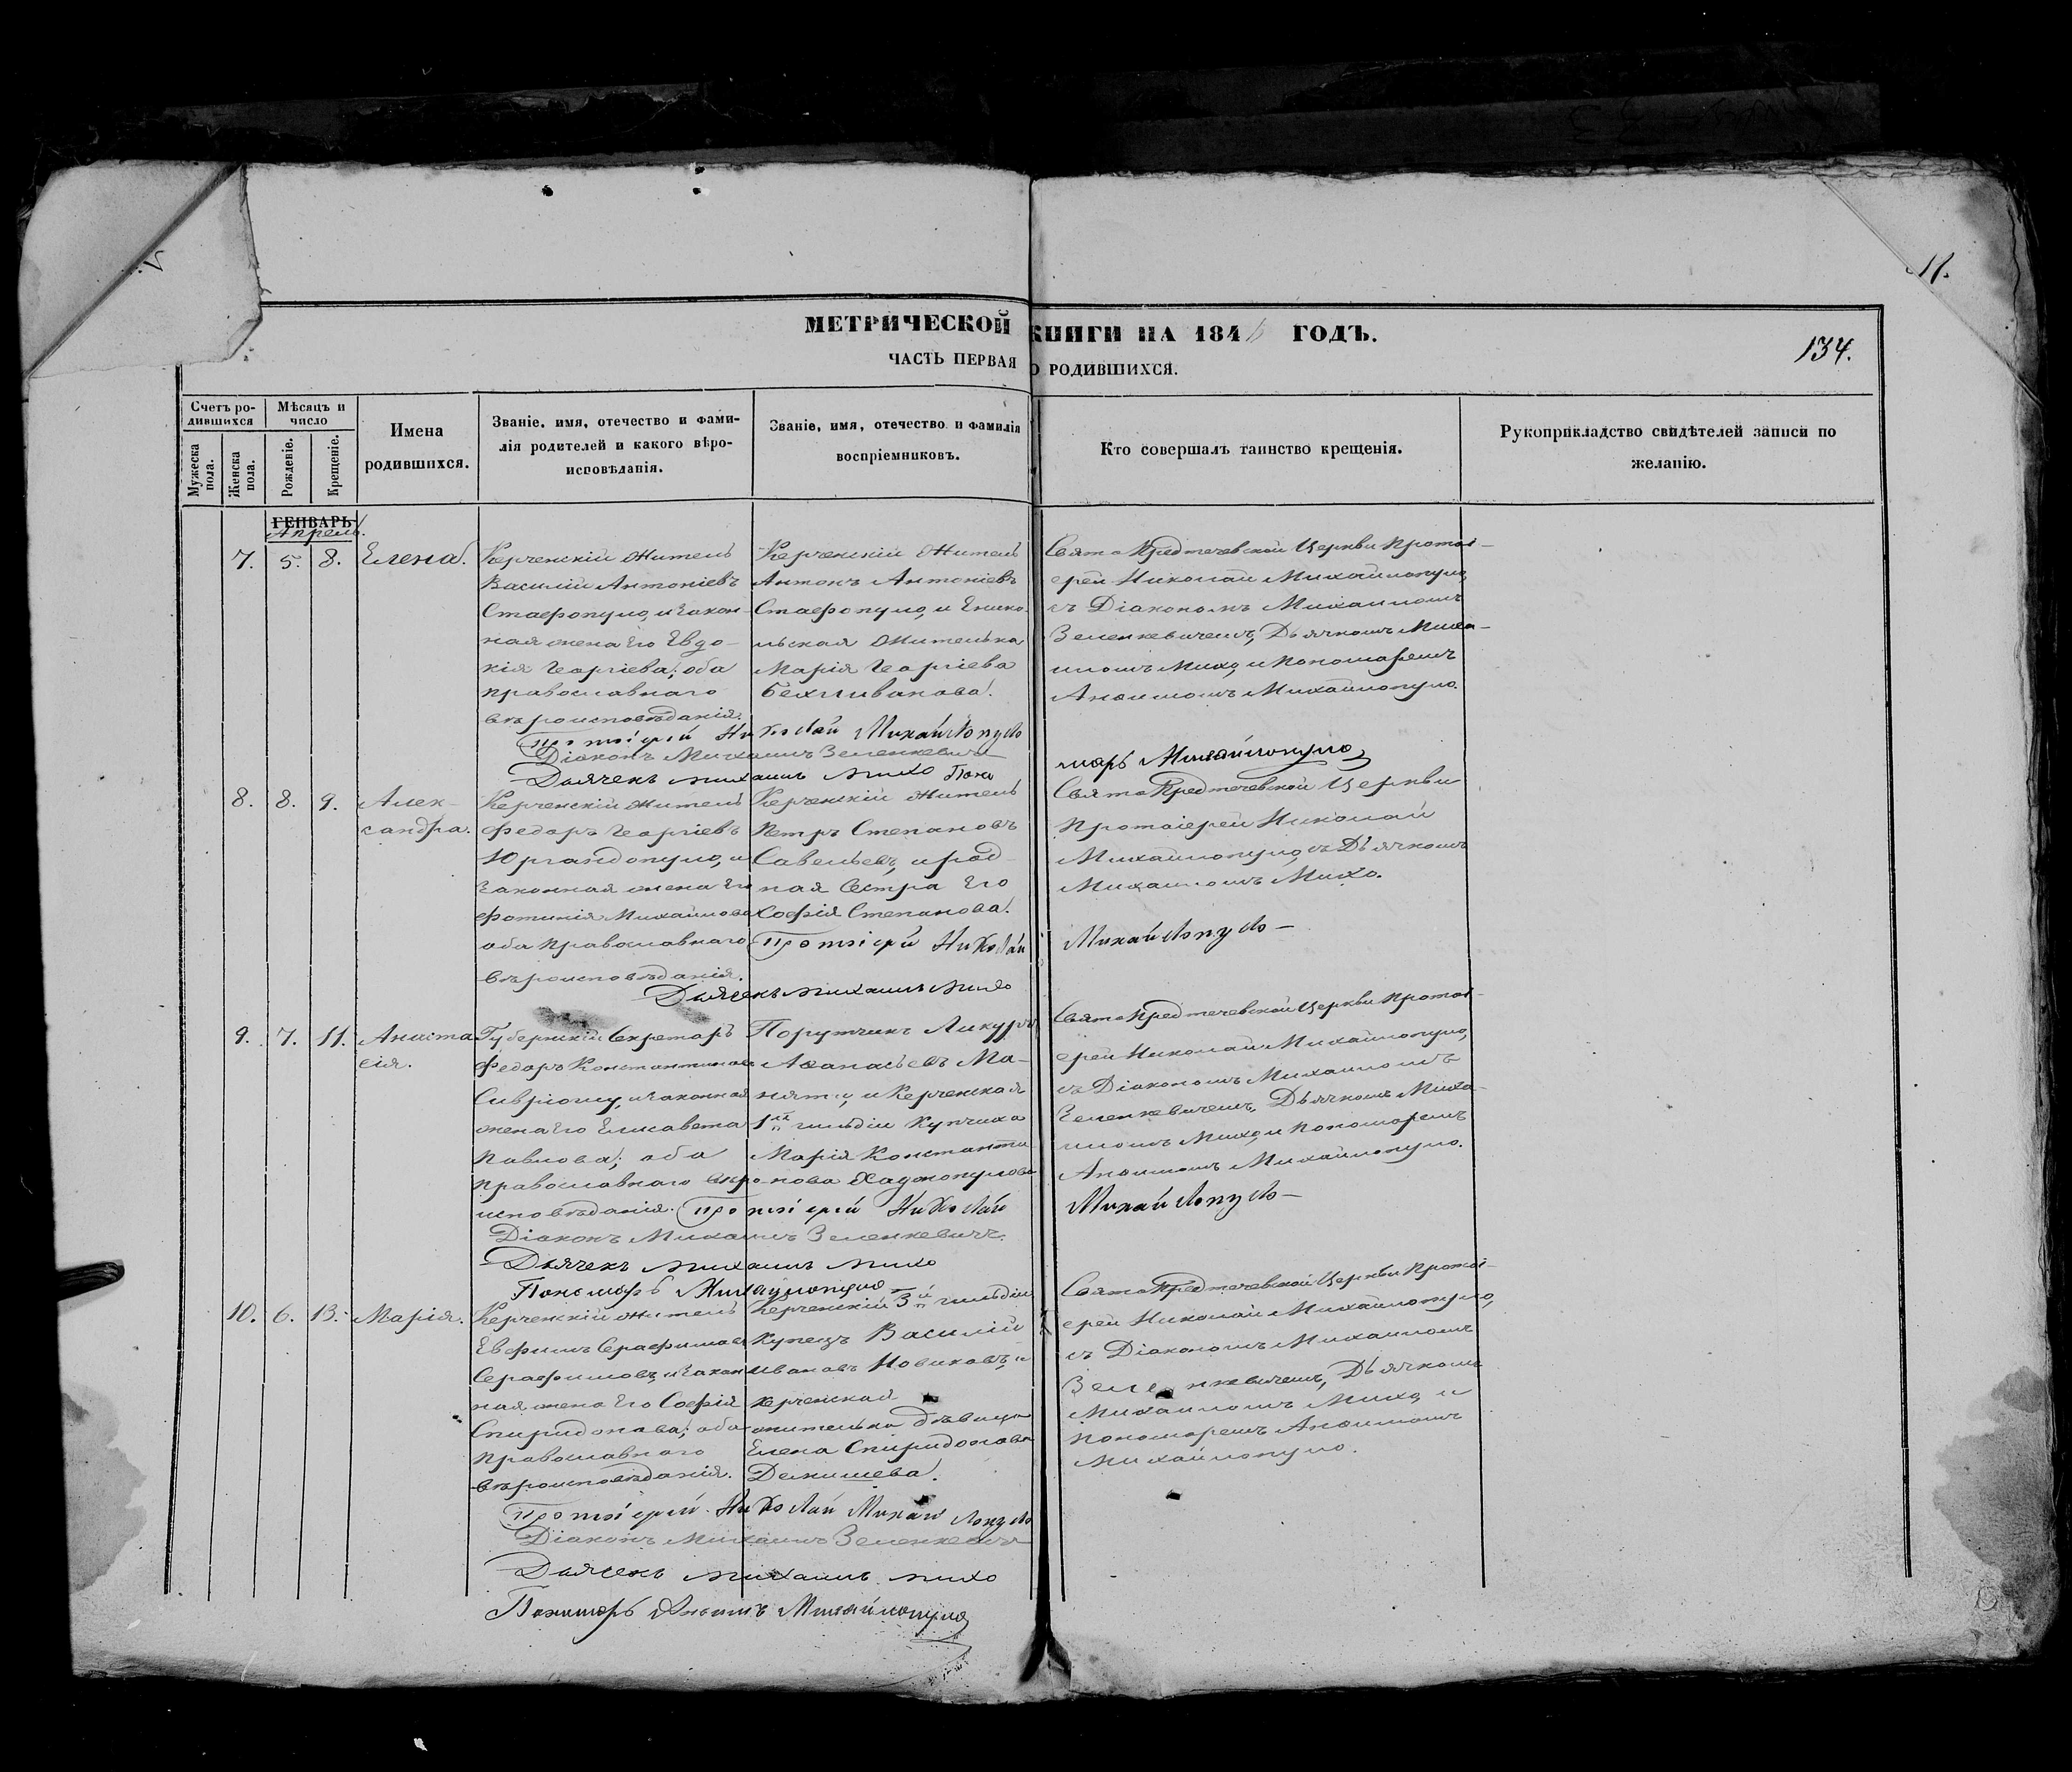 11.
134.
МЕТРИЧЕСКОЙ КНИГИ НА 184 ГОДЪ.
ЧАСТЬ ПЕРВАЯ О РОДИВШИХСЯ.
Счетъ ро-
дившихся
Мужеска пола.
Женска пола.
Мѣсяцъ и
число
Рожденіе.
Крещеніе.
Имена
родившихся.
Званіе, имя, отечество и фами-
лія родителей и какого вѣро-
исповѣданія.
Званіе, имя, отечество и фамилія
воспріемниковъ.
Кто совершалъ таинство крещенія.
Рукоприкладство свидѣтелей записи по
желанію.
ГЕНВАРЬ
Апрель.
7. 5. 8. Елена.
Керченскій житель
Василій Антоніевъ
Стафопуло, и закон-
ная жена Его Евдо-
кія Георгіева; оба
православнаго
вѣроисповѣданія.
Керченскій житель
Антонъ Антоніевъ
Стафопуло, и Енико-
льская жителька
Марія Георгіева
Бехливанова.
Свято Предтечевской Церкви Протоі-
ерей Николай Михайлопуло,
съ Діакономъ Михаиломъ
Зеленкевичемъ, Дьячкомъ Миха-
иломъ Михо, и Пономаремъ
Анѳимомъ Михайлопуло.
Протоіерей Николай Михайлопуло
Діаконъ Михаилъ Зеленкевичъ
Дьячекъ Михаилъ Михо Поно
марь Михайлопуло
8. 8. 9. Алек-
сандра.
Керченскій житель
Федоръ Георгіевъ
Юргандопуло, и
Законная жена Его
Фотинія Михайлова
оба Православнаго
вѣроисповѣданія.
Керченскій житель
Петръ Степановъ
Савельевъ, и род-
ная Сестра Его
Софія Степанова.
Свято Предтечевской Церкви
Протоіерей Николай
Михайлопуло, съ Дьячкомъ
Михаиломъ Михо.
Протоіерей Николай Михайлопуло
Дьячекъ Михаилъ Михо
9. 7. 11. Анаста
сія.
Губернскій Секретарь
Федоръ Константиновъ
и Законная
жена Его Елисавета
Павлова; оба
православнаго вѣро
исповѣданія.
Порутчикъ Ликургъ
Аѳанасьевъ Ма-
и Керченская
1й гильдіи Купчиха
Марія Константи
нова Хаджопулова
Свято Предтечевской Церкви Протоі-
ерей Николай Михайлопуло,
съ Діакономъ Михаиломъ
Зеленкевичемъ, Дьячкомъ Миха-
иломъ Михо, и Пономаремъ
Анѳимомъ Михайлопуло.
Протоіерей Николай Михайлопуло
Діаконъ Михаилъ Зеленкевичъ.
Дьячекъ Михаилъ Михо
Пономарь Михайлопуло
10. 6. 13. Марія.
Керченскій житель
Евфимъ Серафимовъ
Серафимовъ, и закон
ная жена Его Софія
Спиридонова; оба
Православнаго
вѣроисповѣданія.
Керченскій 3й гильдіи
Купецъ Василій
Ивановъ Новиковъ, и
Керченская
жителька дѣвица
Елена Спиридонова
Свято Предтечевской Церкви Протоі-
ерей Николай Михайлопуло,
съ Діакономъ Михаиломъ
Зеленкевичемъ, Дьячкомъ
Михаиломъ Михо, и
Пономаремъ Анѳимомъ
Михайлопуло.
Протоіерей Николай Михайлопуло
Діаконъ Михаилъ Зеленкевичъ
Дьячекъ Михаилъ Михо
Пономарь Анѳимъ Михайлопуло